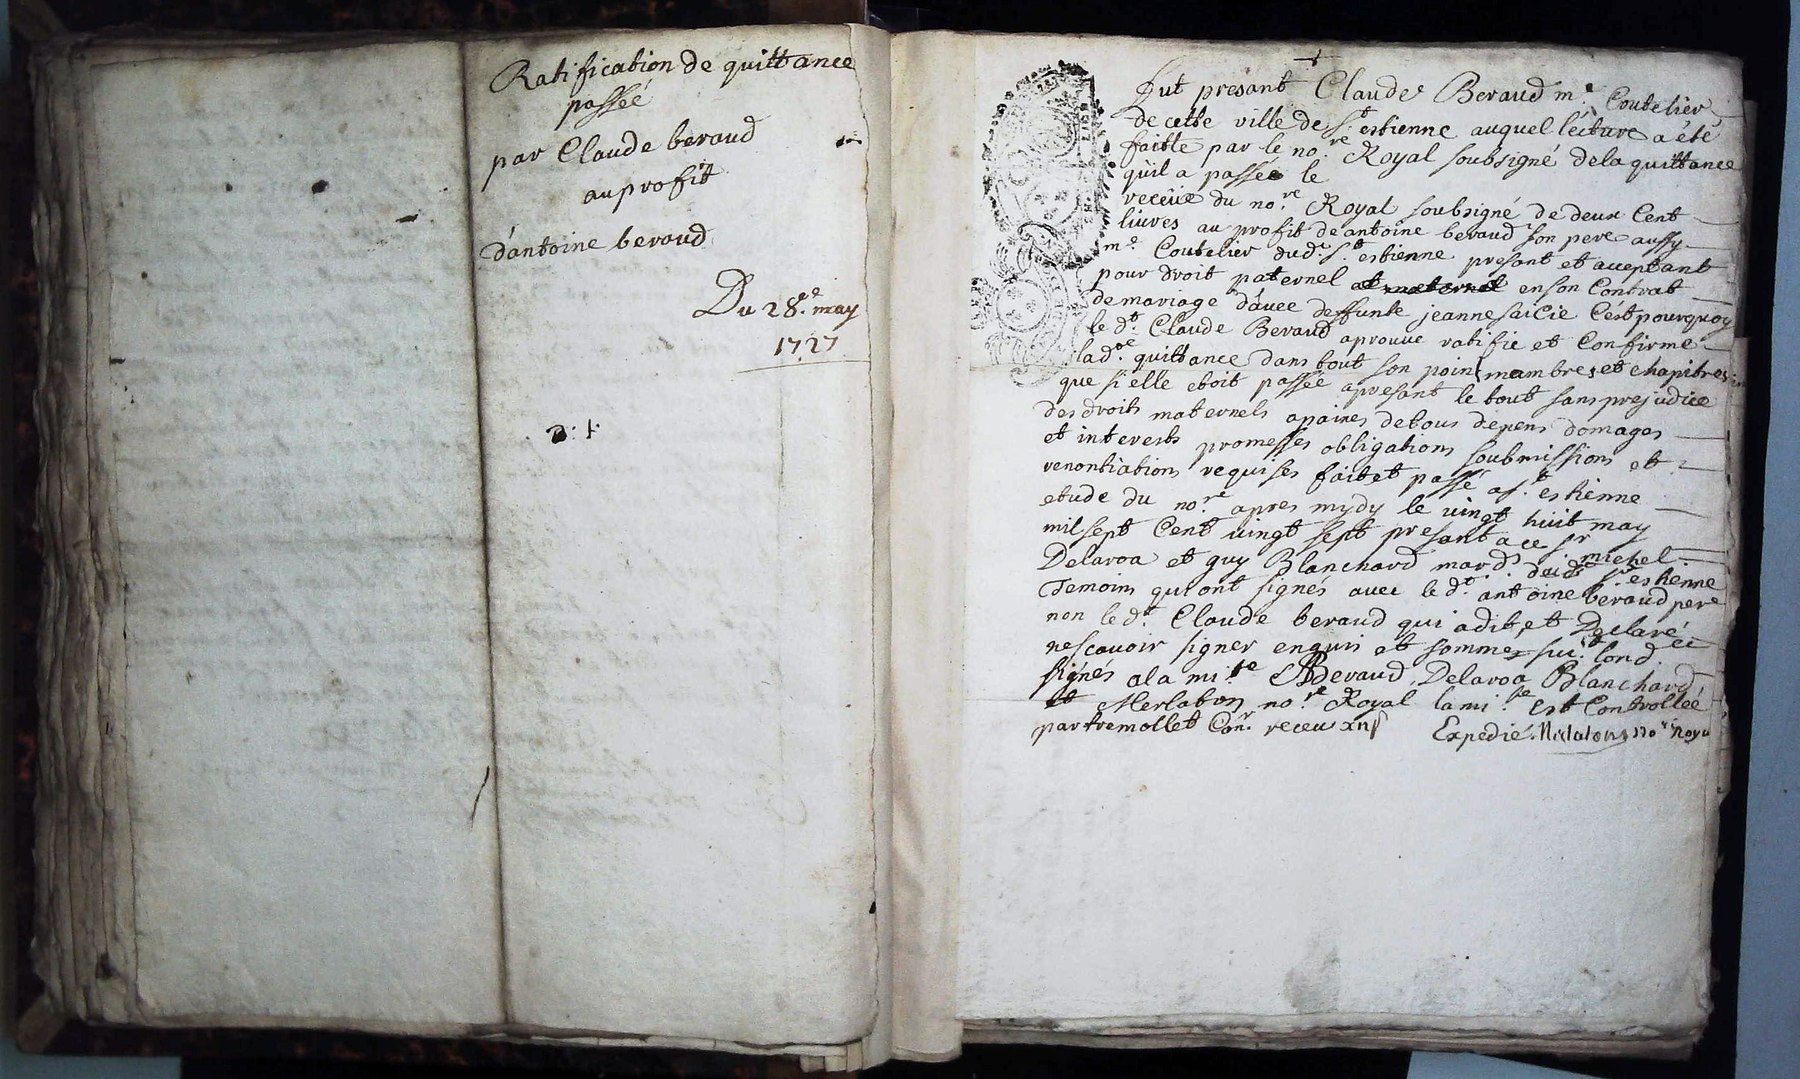 Ratification de quittance
passée
par Claude beraud
au profit
d'antoine beraud
Du 28.e may
1727
Fut presant Claude Beraud m.e Coutelier
de cette ville de s.t estienne auquel lecture a été
faitte par le no.re Royal soubsigné dela quittance
qu'il a passée le
receüe du no.re Royal soubsigné de deux Cent
livres au profit de antoine beraud son pere aussy
m.e Coutelier dud.t s.t estienne presant et acceptant
pour droit paternel et maternel en son Contrat
de mariage d'avec deffunte jeanne saicie C'est pourquoy
le d.t Claude Beraud aprouve ratifie et Confirme
lad.te quittance dans tout son point membres et chapitres
que si elle etoit passée apresant le tout sans prejudice
des droits maternels apaines de tous depens domages
et interests promesses obligations soubmissions et
renontiations requises fait et passé a s.t estienne
etude du no.re apres mydy le vingt huit may
mil sept Cent vingt sept presant a ce s.r michel
Delaroa et guy Blanchard mard.s dud.t s.t estienne
Temoins qui ont signés avec le d.t antoine beraud pere
non le d.t Claude beraud qui a dit et Declaré
ne scavoir signer enquis et sommé
signés a la mi.te Beraud, Delaroa Blanchard
et Merlaton no.re Royal la mi.te est Controllée
par tremollet Con.r receu
Expedié. no.re Royal